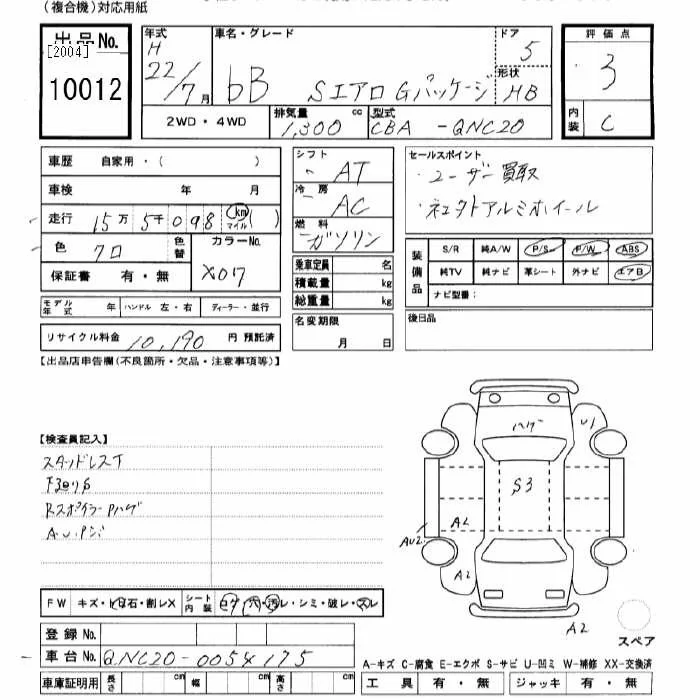 (複合機)対応用紙
出品No.
[2004]
10012
年式
H
22/7月
車名・グレード
bB Sエアロ Gパッケージ
ドア
5
形状
HB
2WD・4WD
排気量
1,300 cc
型式
CBA-QNC20
評価点
3
内装
C
車歴 自家用・( )
車検 年 月
走行 15万5千098 km マイル ( )
色 クロ
色替
カラーNo.
X07
保証書 有・無
モデル年式 年 ハンドル 左・右 ディーラー・並行
リサイクル料金 10,190 円 預託済
シフト
AT
冷房
AC
燃料
ガソリン
乗車定員 名
積載量 kg
総重量 kg
名変期限
月 日
セールスポイント
・ユーザー買取
・社外アルミホイール
装備品
S/R 純A/W P/S P/W ABS
純TV 純ナビ 革シート 外ナビ エアB
ナビ型番:
後日品
【出品店申告欄(不良箇所・欠品・注意事項等)】
【検査員記入】
スタッドレスT
RスポイラーPハゲ
A.U.Pジ
ハゲ
U1
S3
A2
AU2
A2
A2
FW キズ・トビ石・割レX
シート内装 コゲ・穴・汚レ・シミ・破レ・スレ
登録No.
車台No. QNC20-0054175
車庫証明用 長さ cm 幅 cm 高さ cm
スペア
A-キズ C-腐食 E-エクボ S-サビ U-凹ミ W-補修 XX-交換済
工具 有・無 ジャッキ 有・無